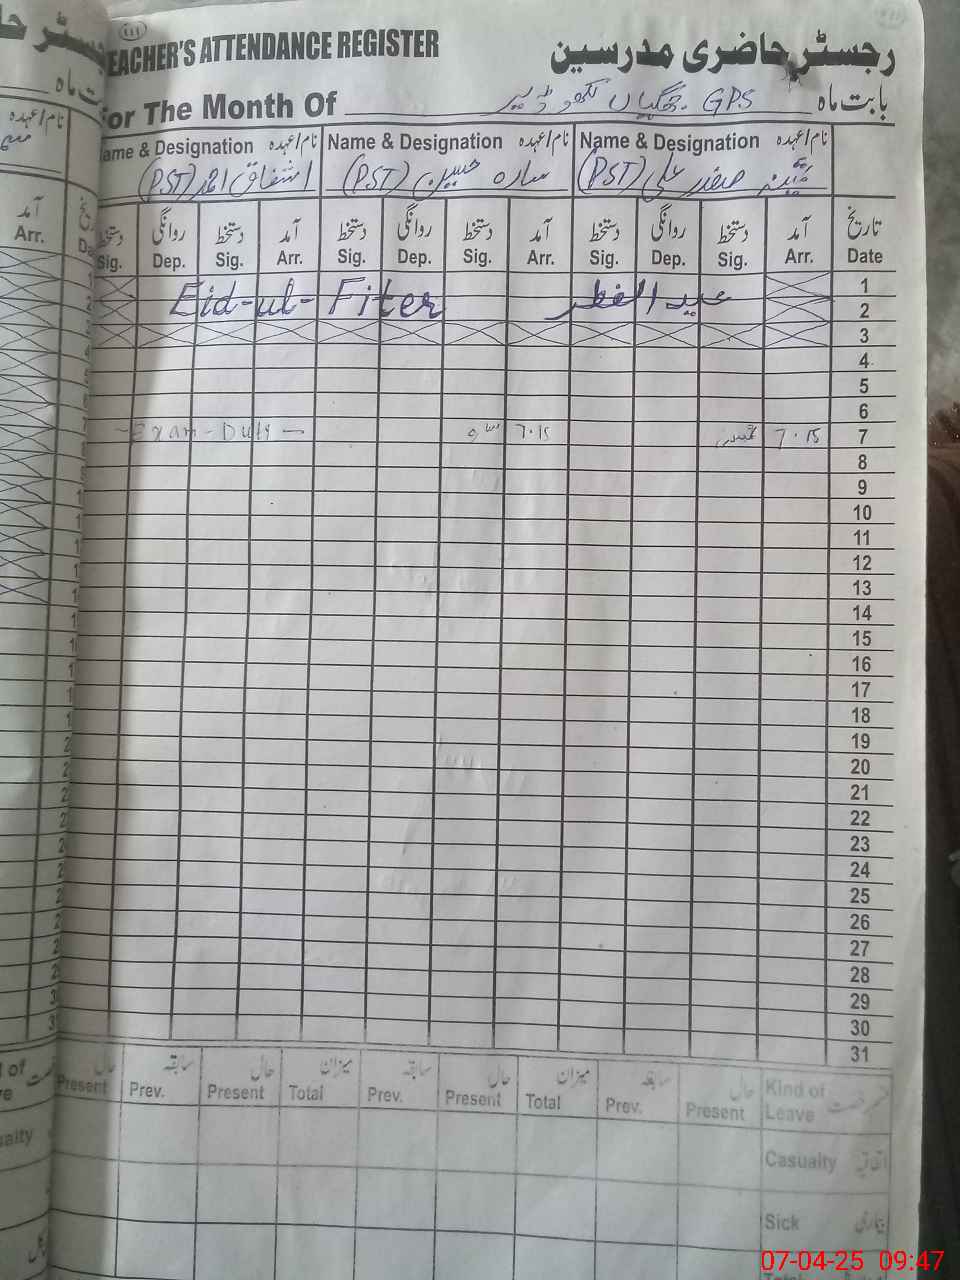 111
TEACHER'S ATTENDANCE REGISTER رجسٹر حاضری مدرسین
For The Month Of GPS بابت ماہ
Name & Designation نام/عہدہ Name & Designation نام/عہدہ Name & Designation نام/عہدہ
اشفاق احمد (PST) سارہ حسین (PST) صفدر علی (PST)
دستخط روانگی دستخط آمد دستخط روانگی دستخط آمد دستخط روانگی دستخط آمد تاریخ
Sig. Dep. Sig. Arr. Sig. Dep. Sig. Arr. Sig. Dep. Sig. Arr. Date
1
Eid-ul-Fiter عید الفطر 2
3
4
5
6
Exam - Duty - 7.15 7.15 7
8
9
10
11
12
13
14
15
16
17
18
19
20
21
22
23
24
25
26
27
28
29
30
31
حال سابقہ حال میزان سابقہ حال میزان سابقہ حال قسم رخصت
Present Prev. Present Total Prev. Present Total Prev. Present Kind of Leave
Casualty اتفاقیہ
Sick بیماری
07-04-25 09:47